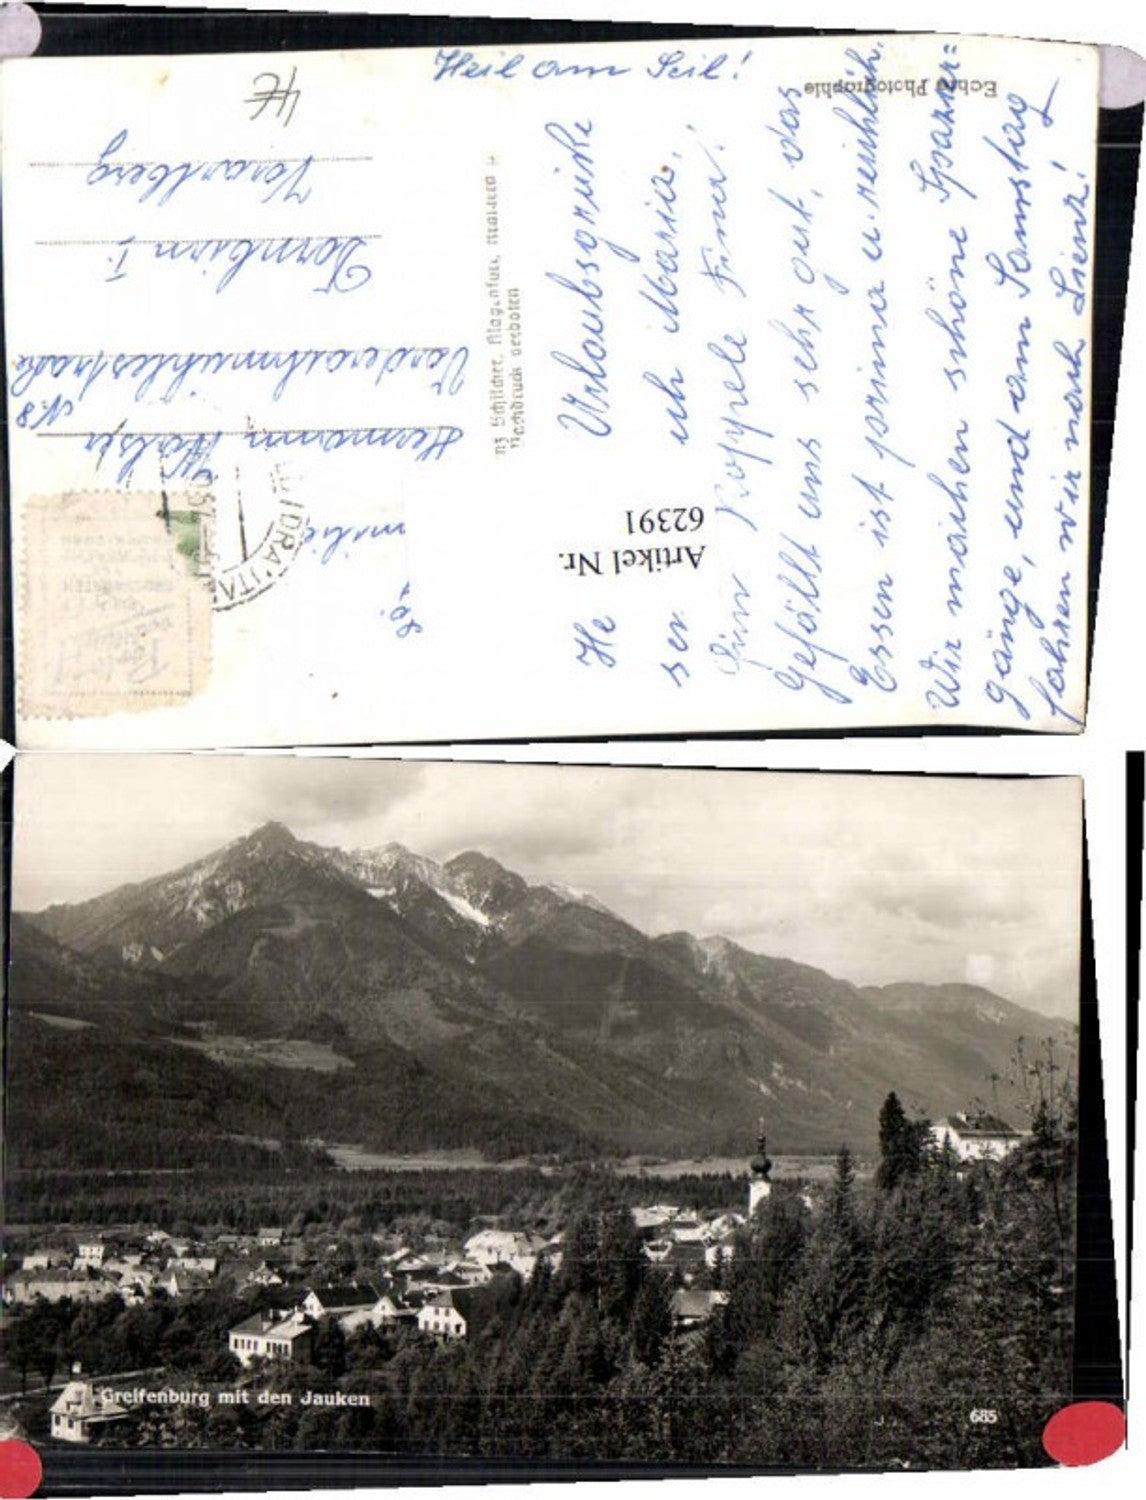 Heil am Seil!
Echte Photographie
Urlaubsgrüße
He
ser
ich Maria.
Koppele Fina!
Gefällt uns sehr gut, das
Essen ist prima u. reichlich.
Wir machen schöne Spazier=
gänge, und am Samstag
fahren wir nach Lienz!
Artikel Nr.
62391
Schilcher, Klagenfurt,
Nachdruck verboten
milie
Hermann Walser
Vorderachmühlestraße N. 8
Dornbirn I.
Vorarlberg
4€
Greifenburg mit den Jauken
685